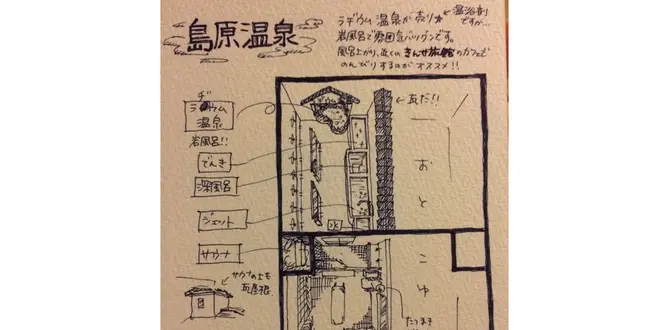 島原温泉
ラヂウム温泉が売り
←温浴剤
ですが…
岩風呂で雰囲気バツグンです。
風呂上がり、近くのきんせ旅館のカフェで
のんびりするのがオススメ!!
ヂ
ラウム
温泉
岩風呂!!
でんき
深風呂
ジェット
サウナ
サウナの上も
瓦屋根
←瓦だ!!
おとこ
水
ゆ